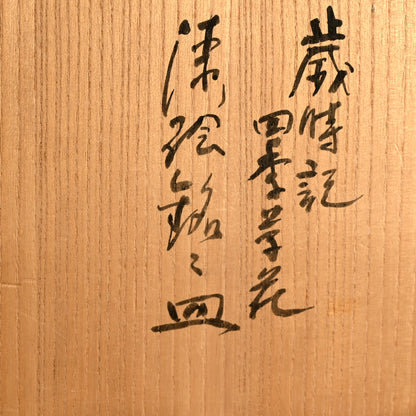 歳時記
四季草花
漆絵銘々皿